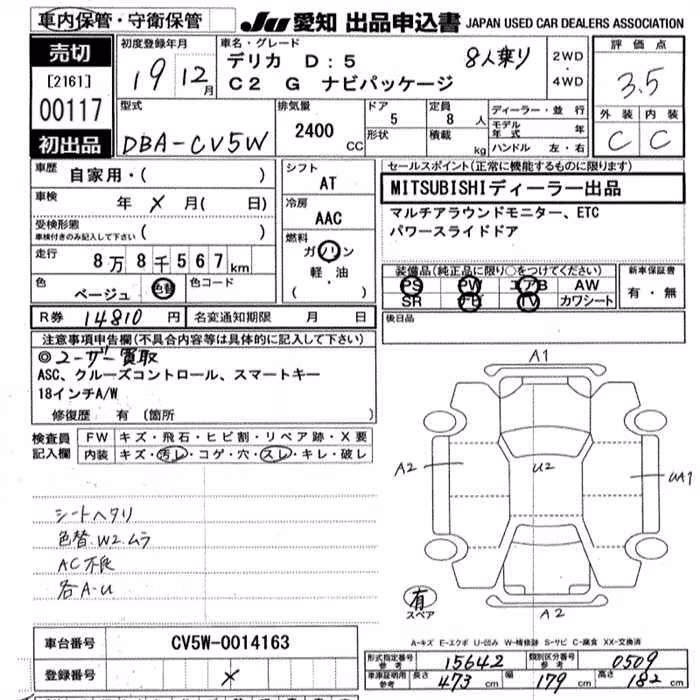 車内保管・守衛保管
JU 愛知 出品申込書 JAPAN USED CAR DEALERS ASSOCIATION
売切
[2161]
00117
初出品
初度登録年月
19 12月
車名・グレード
デリカ D:5 8人乗り
C2 G ナビパッケージ
2WD
・
4WD
評価点
3.5
外装 内装
C C
型式
DBA-CV5W
排気量
2400 CC
ドア
5
形状
定員
8 人
積載
kg
ディーラー・並 行
モデル年式 年
ハンドル 左・右
車歴
自家用・( )
車検
年 × 月( 日)
受検形態
車検付きのみ記入して下さい ( )
走行
8万8千567km
色
ベージュ・色替
色コード
シフト
AT
冷房
AAC
燃料
ガソリン
軽・油
( )
セールスポイント(正常に機能するものに限ります)
MITSUBISHIディーラー出品
マルチアラウンドモニター、ETC
パワースライドドア
装備品(純正品に限り○をつけてください)
PS PW エアB AW
SR ナビ TV カワシート
新車保証書
有・無
R券 14810 円 名変通知期限 月 日
後日品
注意事項申告欄(不具合内容等は具体的に記入して下さい)
◎ユーザー買取
ASC、クルーズコントロール、スマートキー
18インチA/W
修復歴 有 (箇所 )
検査員
記入欄
FW キズ・飛石・ヒビ割・リペア跡・X要
内装 キズ・汚レ・コゲ・穴・スレ・キレ・破レ
シートヘタリ
色替.W2.ムラ
AC不良
各A-U
A1
A2
U2
UA1
有
スペア
A2
A-キズ E-エクボ U-凹み W-補修跡 S-サビ C-腐食 XX-交換済
車台番号 CV5W-0014163
登録番号 ×
形式指定番号
参考
15642
類別区分番号
参考
0509
車庫証明用
参考
長さ 473 cm 幅 179 cm 高さ 182 cm